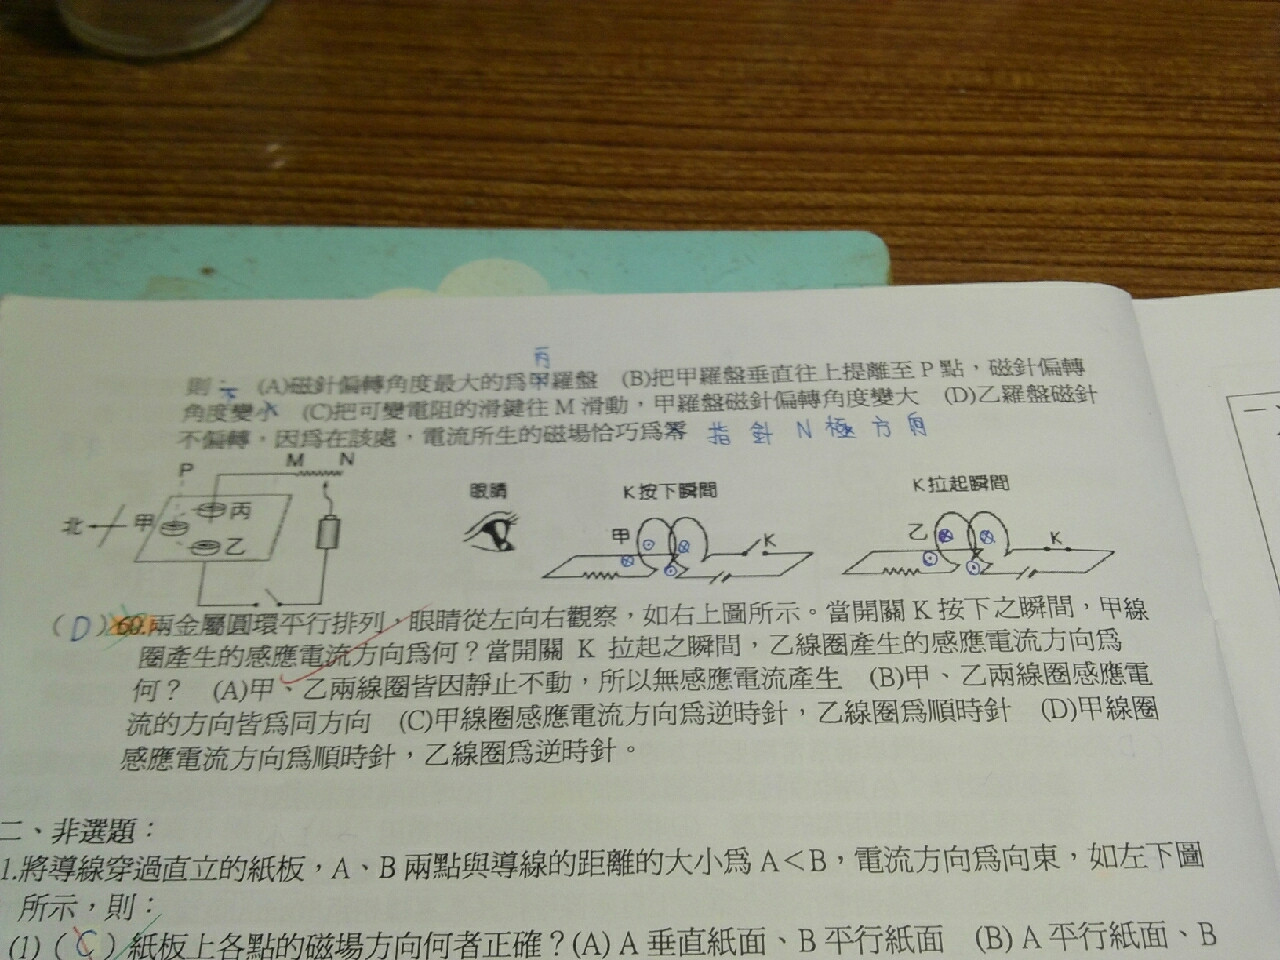 丙
則： (A)磁針偏轉角度最大的為甲羅盤 (B)把甲羅盤垂直往上提離至P點，磁針偏轉
角度變小 (C)把可變電阻的滑鍵往M滑動，甲羅盤磁針偏轉角度變大 (D)乙羅盤磁針
不偏轉，因為在該處，電流所生的磁場恰巧為零 指針N極方向
P M N
北 甲 丙 乙
眼睛
K按下瞬間
甲 K
K拉起瞬間
乙 K
(D)60.兩金屬圓環平行排列，眼睛從左向右觀察，如右上圖所示。當開關K按下之瞬間，甲線
圈產生的感應電流方向為何？當開關 K 拉起之瞬間，乙線圈產生的感應電流方向為
何？ (A)甲、乙兩線圈皆因靜止不動，所以無感應電流產生 (B)甲、乙兩線圈感應電
流的方向皆為同方向 (C)甲線圈感應電流方向為逆時針，乙線圈為順時針 (D)甲線圈
感應電流方向為順時針，乙線圈為逆時針。
二、非選題：
1.將導線穿過直立的紙板，A、B兩點與導線的距離的大小為A＜B，電流方向為向東，如左下圖
所示，則：
(1)(C)紙板上各點的磁場方向何者正確？(A) A 垂直紙面、B 平行紙面 (B) A 平行紙面、B
一、